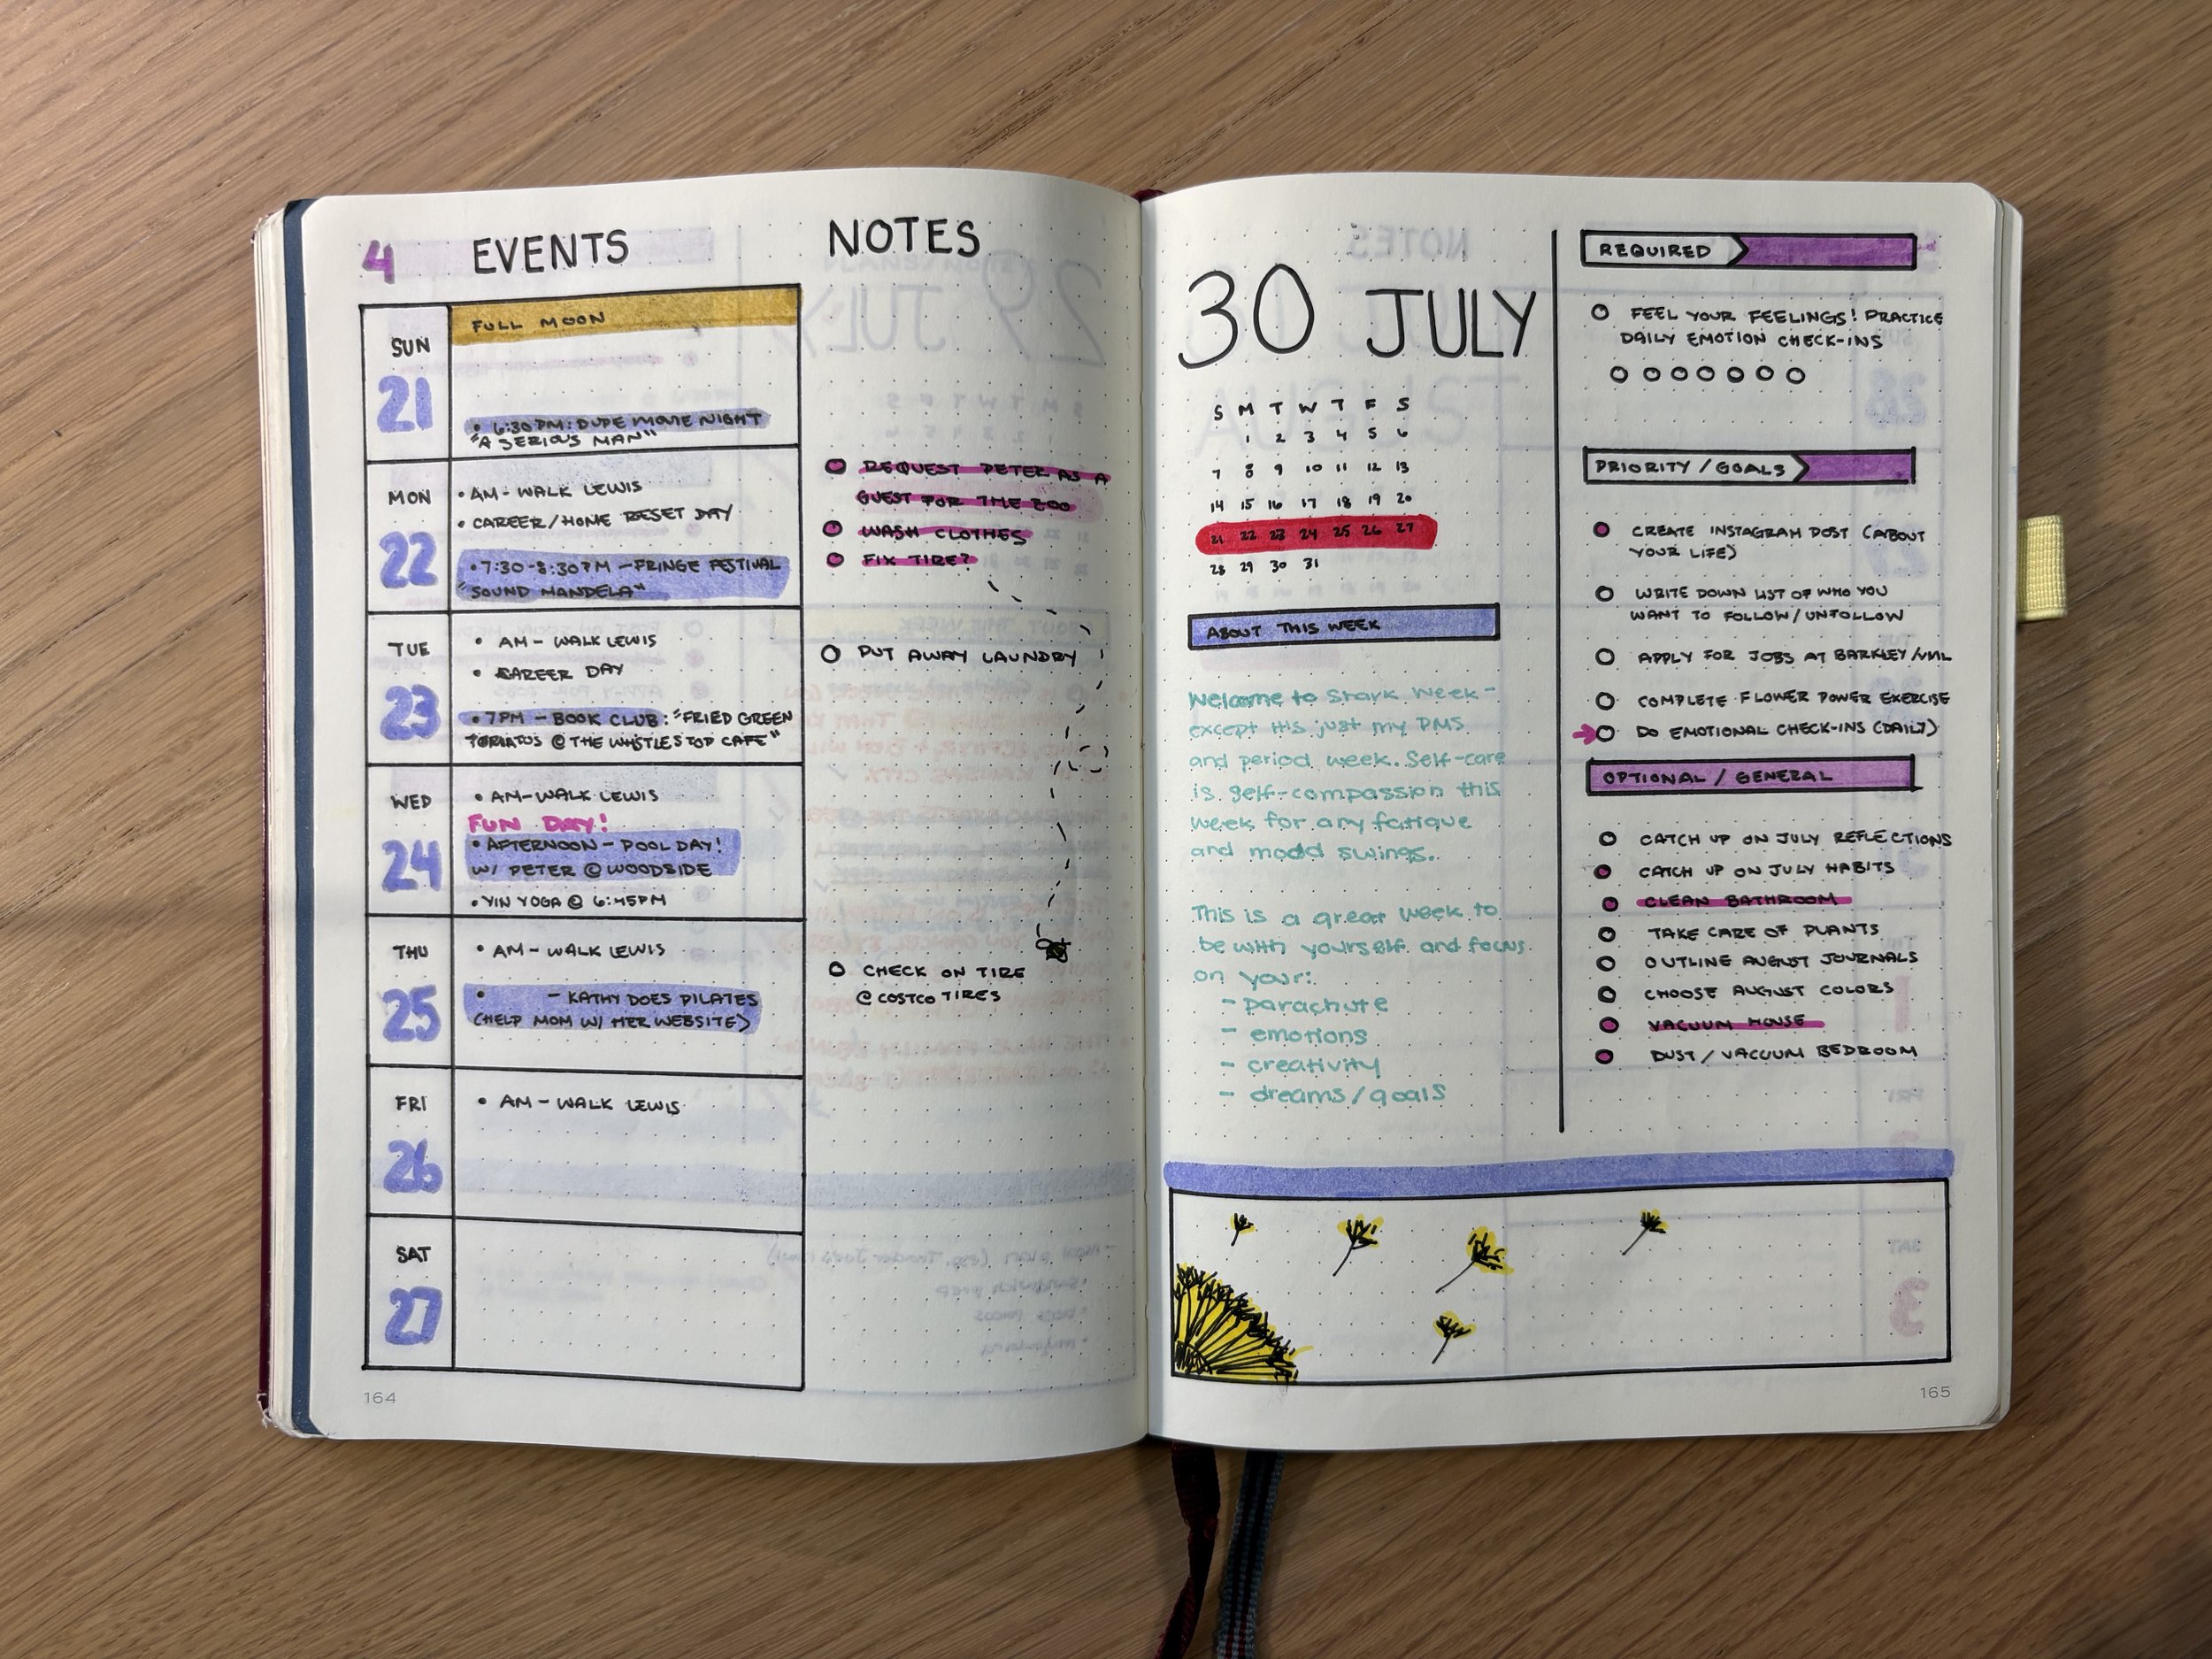 4
EVENTS
SUN
21
FULL MOON
• 6:30PM: DUPE MOVIE NIGHT
"A SERIOUS MAN"
MON
22
• AM - WALK LEWIS
• CAREER/HOME RESET DAY
• 7:30-8:30PM - FRINGE FESTIVAL
"SOUND MANDELA"
TUE
23
• AM - WALK LEWIS
• CAREER DAY
• 7PM - BOOK CLUB: "FRIED GREEN
TOMATOS @ THE WHISTLESTOP CAFE"
WED
24
• AM - WALK LEWIS
FUN DAY!
• AFTERNOON - POOL DAY!
W/ PETER @ WOODSIDE
• YIN YOGA @ 6:45PM
THU
25
• AM - WALK LEWIS
• - KATHY DOES PILATES
(HELP MOM W/ HER WEBSITE)
FRI
26
• AM - WALK LEWIS
SAT
27
164
NOTES
REQUEST PETER AS A
GUEST FOR THE ZOO
WASH CLOTHES
FIX TIRE?
PUT AWAY LAUNDRY
CHECK ON TIRE
@ COSTCO TIRES
30 JULY
S M T W T F S
1 2 3 4 5 6
7 8 9 10 11 12 13
14 15 16 17 18 19 20
21 22 23 24 25 26 27
28 29 30 31
ABOUT THIS WEEK
Welcome to Shark Week -
except this just my PMS
and period week. Self-care
is self-compassion this
week for any fatigue
and modd swings.
This is a great week to
be with yourself and focus
on your:
- parachute
- emotions
- creativity
- dreams/goals
REQUIRED
FEEL YOUR FEELINGS! PRACTICE
DAILY EMOTION CHECK-INS
PRIORITY/GOALS
CREATE INSTAGRAM POST (ABOUT
YOUR LIFE)
WRITE DOWN LIST OF WHO YOU
WANT TO FOLLOW/UNFOLLOW
APPLY FOR JOBS AT BARKLEY/VML
COMPLETE FLOWER POWER EXERCISE
DO EMOTIONAL CHECK-INS (DAILY)
OPTIONAL / GENERAL
CATCH UP ON JULY REFLECTIONS
CATCH UP ON JULY HABITS
CLEAN BATHROOM
TAKE CARE OF PLANTS
OUTLINE AUGUST JOURNALS
CHOOSE AUGUST COLORS
VACUUM HOUSE
DUST/VACUUM BEDROOM
165